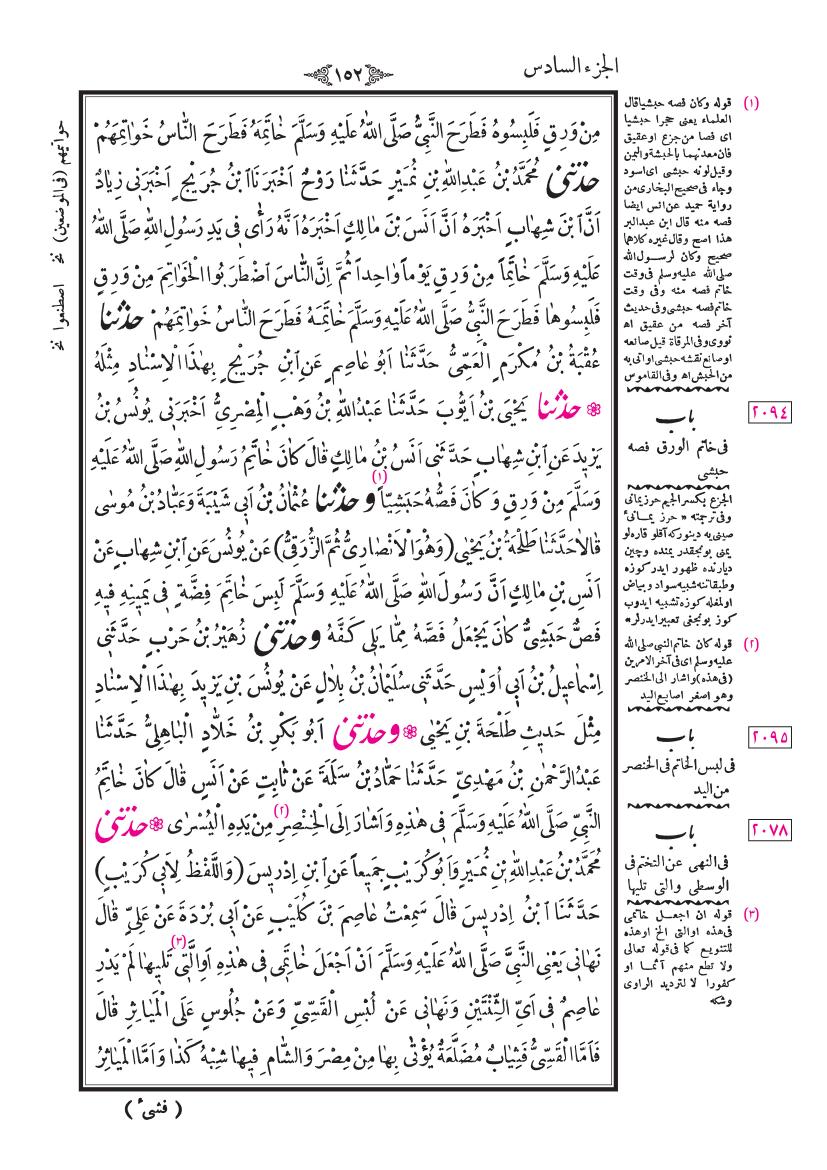 الجزء السادس
١٥٢
مِنْ وَرِقٍ فَلَبِسُوهُ فَطَرَحَ النَّبِيُّ صَلَّى اللهُ عَلَيْهِ وَسَلَّمَ خَاتِمَهُ فَطَرَحَ النَّاسُ خَوَاتِمَهُمْ
حَدَّثَنِي مُحَمَّدُ بْنُ عَبْدِ اللهِ بْنِ نُمَيْرٍ حَدَّثَنَا رَوْحٌ أَخْبَرَنَا ابْنُ جُرَيْجٍ أَخْبَرَنِي زِيَادٌ
أَنَّ ابْنَ شِهَابٍ أَخْبَرَهُ أَنَّ أَنَسَ بْنَ مَالِكٍ أَخْبَرَهُ أَنَّهُ رَأَى فِي يَدِ رَسُولِ اللهِ صَلَّى اللهُ
عَلَيْهِ وَسَلَّمَ خَاتِمًا مِنْ وَرِقٍ يَوْمًا وَاحِدًا ثُمَّ إِنَّ النَّاسَ اضْطَرَبُوا الْخَوَاتِمَ مِنْ وَرِقٍ
فَلَبِسُوهَا فَطَرَحَ النَّبِيُّ صَلَّى اللهُ عَلَيْهِ وَسَلَّمَ خَاتِمَهُ فَطَرَحَ النَّاسُ خَوَاتِمَهُمْ حَدَّثَنَا
عُقْبَةُ بْنُ مُكْرَمٍ الْعَمِّيُّ حَدَّثَنَا أَبُو عَاصِمٍ عَنِ ابْنِ جُرَيْجٍ بِهٰذَا الْإِسْنَادِ مِثْلَهُ
حَدَّثَنَا يَحْيَى بْنُ أَيُّوبَ حَدَّثَنَا عَبْدُ اللهِ بْنُ وَهْبٍ الْمِصْرِيُّ أَخْبَرَنِي يُونُسُ بْنُ
يَزِيدَ عَنِ ابْنِ شِهَابٍ حَدَّثَنِي أَنَسُ بْنُ مَالِكٍ قَالَ كَانَ خَاتِمُ رَسُولِ اللهِ صَلَّى اللهُ عَلَيْهِ
وَسَلَّمَ مِنْ وَرِقٍ وَكَانَ فَصُّهُ حَبَشِيًّا (١) وَحَدَّثَنَا عُثْمَانُ بْنُ أَبِي شَيْبَةَ وَعَبَّادُ بْنُ مُوسَى
قَالَا حَدَّثَنَا طَلْحَةُ بْنُ يَحْيَى (وَهُوَ الْأَنْصَارِيُّ ثُمَّ الزُّرَقِيُّ) عَنْ يُونُسَ عَنِ ابْنِ شِهَابٍ عَنْ
أَنَسِ بْنِ مَالِكٍ أَنَّ رَسُولَ اللهِ صَلَّى اللهُ عَلَيْهِ وَسَلَّمَ لَبِسَ خَاتِمَ فِضَّةٍ فِي يَمِينِهِ فِيهِ
فَصٌّ حَبَشِيٌّ كَانَ يَجْعَلُ فَصَّهُ مِمَّا يَلِي كَفَّهُ وَحَدَّثَنِي زُهَيْرُ بْنُ حَرْبٍ حَدَّثَنِي
إِسْمَاعِيلُ بْنُ أَبِي أُوَيْسٍ حَدَّثَنِي سُلَيْمَانُ بْنُ بِلَالٍ عَنْ يُونُسَ بْنِ يَزِيدَ بِهٰذَا الْإِسْنَادِ
مِثْلَ حَدِيثِ طَلْحَةَ بْنِ يَحْيَى وَحَدَّثَنِي أَبُو بَكْرِ بْنُ خَلَّادٍ الْبَاهِلِيُّ حَدَّثَنَا
عَبْدُ الرَّحْمٰنِ بْنُ مَهْدِيٍّ حَدَّثَنَا حَمَّادُ بْنُ سَلَمَةَ عَنْ ثَابِتٍ عَنْ أَنَسٍ قَالَ كَانَ خَاتِمُ
النَّبِيِّ صَلَّى اللهُ عَلَيْهِ وَسَلَّمَ فِي هٰذِهِ وَأَشَارَ إِلَى الْخِنْصِرِ (٢) مِنْ يَدِهِ الْيُسْرَى حَدَّثَنِي
مُحَمَّدُ بْنُ عَبْدِ اللهِ بْنِ نُمَيْرٍ وَأَبُو كُرَيْبٍ جَمِيعًا عَنِ ابْنِ إِدْرِيسَ (وَاللَّفْظُ لِأَبِي كُرَيْبٍ)
حَدَّثَنَا ابْنُ إِدْرِيسَ قَالَ سَمِعْتُ عَاصِمَ بْنَ كُلَيْبٍ عَنْ أَبِي بُرْدَةَ عَنْ عَلِيٍّ قَالَ
نَهَانِي يَعْنِي النَّبِيَّ صَلَّى اللهُ عَلَيْهِ وَسَلَّمَ أَنْ أَجْعَلَ خَاتِمِي فِي هٰذِهِ أَوِ الَّتِي (٣) تَلِيهَا لَمْ يَدْرِ
عَاصِمٌ فِي أَيِّ الثِّنْتَيْنِ وَنَهَانِي عَنْ لُبْسِ الْقَسِّيِّ وَعَنْ جُلُوسٍ عَلَى الْمَيَاثِرِ قَالَ
فَأَمَّا الْقَسِّيُّ فَثِيَابٌ مُضَلَّعَةٌ يُؤْتَى بِهَا مِنْ مِصْرَ وَالشَّامِ فِيهَا شِبْهُ كَذَا وَأَمَّا الْمَيَاثِرُ
( فشىء )
(١) قوله وكان فصه حبشيا قال
العلماء يعنى حجرا حبشيا
اى فصا من جزع او عقيق
فان معدنهما بالحبشة واليمن
وقيل لونه حبشى اى اسود
وجاء فى صحيح البخارى من
رواية حميد عن انس ايضا
فصه منه قال ابن عبدالبر
هذا اصح وقال غيره كلاهما
صحيح وكان لرسول الله
صلى الله عليه وسلم فى وقت
خاتم فصه منه وفى وقت
خاتم فصه حبشى وفى حديث
آخر فصه من عقيق اه
نووى وفى المرقاة قيل صانعه
او صانع نقشه حبشى او اتى به
من الحبش اه وفى القاموس
٢٠٩٤
باب
فى خاتم الورق فصه
حبشى
الجزع بكسر الجيم حرز يمانى
وفى ترجمته « حرز يمانى
صينى يه دينور كه آقلو قاره لو
يمنى بونجقدر يمنده وچين
ديارنده ظهور ايدر كوزه
وطبقاتنه شبيه سواد وبياض
اولمغله كوزه تشبيه ايدوب
كوز بونجغى تعبير ايدرلر »
(٢) قوله كان خاتم النبى صلى الله
عليه وسلم اى فى آخر الامرين
(فى هذه) واشار الى الخنصر
وهو اصغر اصابع اليد
٢٠٩٥
باب
فى لبس الخاتم فى الخنصر
من اليد
٢٠٧٨
باب
فى النهى عن التختم فى
الوسطى والتى تليها
(٣) قوله ان اجعل خاتمى
فى هذه او التى الخ او هذه
للتنويع كما فى قوله تعالى
ولا تطع منهم آثما او
كفورا لا لترديد الراوى
وشكه
خواتيمهم (فى الموضعين) نخ اصطنعوا نخ